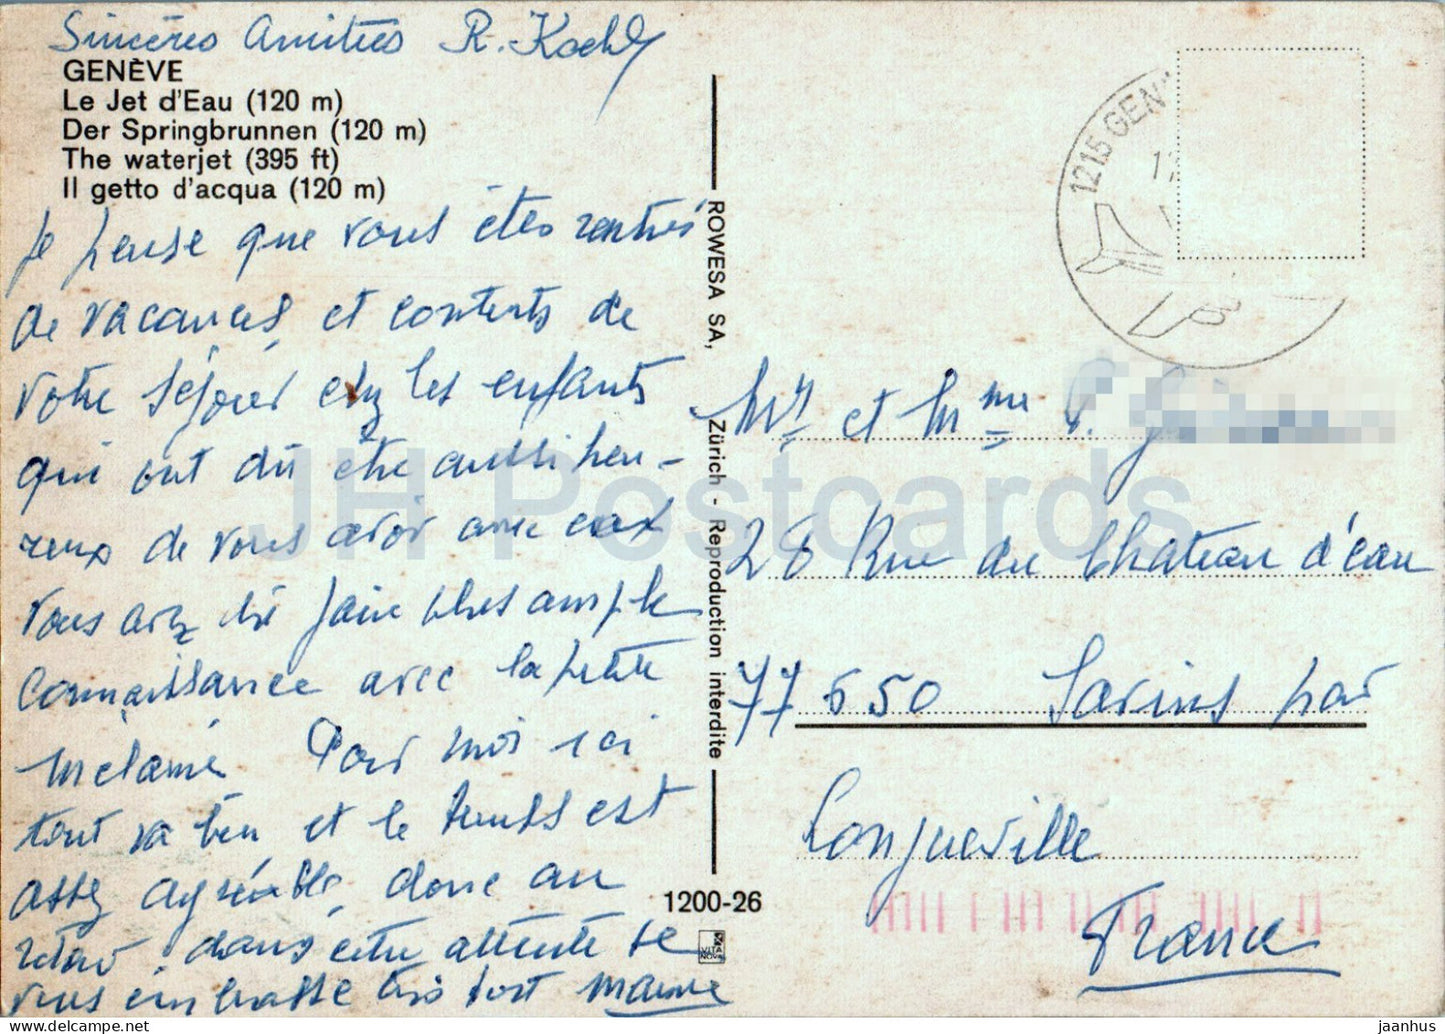 Sincères Amitiés R. Koehly
GENÈVE
Le Jet d'Eau (120 m)
Der Springbrunnen (120 m)
The waterjet (395 ft)
Il getto d'acqua (120 m)
Je pense que vous êtes rentrés
de vacances, et contents de
votre séjour chez les enfants
qui ont dû être aussi heu-
reux de vous avoir avec eux
vous avez dû faire plus ample
connaissance avec la petite
Mélanie Pour moi ici
tout va bien et le temps est
assez agréable, donc au
retour, dans cette attente je
vous embrasse très fort
ROWESA SA, Zürich - Reproduction interdite
1200-26
VITA
NOVA
1215 GEN
Mr et Mme
28 Rue du Chateau d'eau
77 650 Savins par
Longueville
France
JH Postcards
jaanhus
delcampe.net